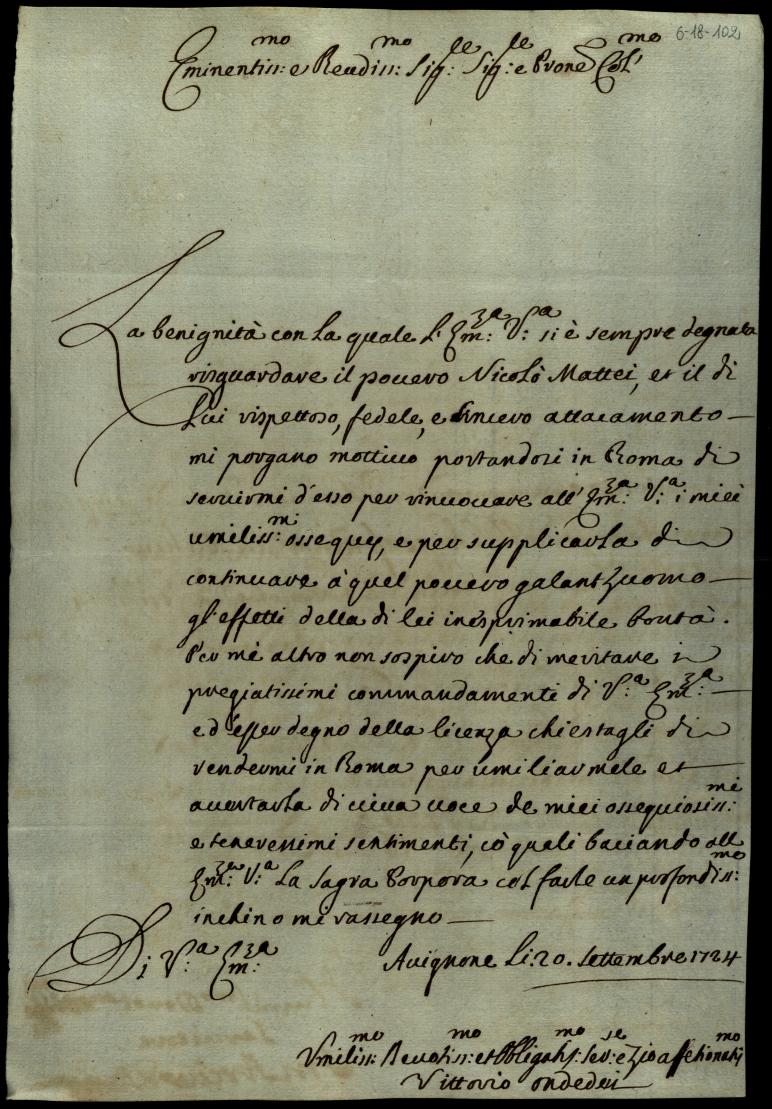 6-18-102
Eminentiss:mo e Reudiss:mo Sig:le Sig:le e Prone Col:mo
La benignità con la quale l'Em:za V:a si è sempre degnata
risguardare il pouero Nicolò Mattei, et il di
Lui rispettoso, fedele, e sincero attacamento
mi porgano mottiuo portandosi in Roma di
seruirmi d'esso per rinuouare all'Em:za V:a i miei
umiliss:mi ossequy, e per supplicarla di
continuare à quel pouero galantzuomo
gl'effetti della di lei inesprimabile bontà.
Per mè altro non sospiro che di meritare i
pregiatissimi commandamenti di V:a Em:za
e d'esser degno della licenza chiestagli di
rendermi in Roma per umiliarmele et
accertarla di uiua uoce de miei ossequiosiss:mi
e tenerissimi sentimenti, cò quali baciando all
Em:za V:a la Sagra Porpora col farle un profondiss:mo
inchino mi rassegno
Di V:a Em:za
Auignone Li 20. Settembre 1724
Vmiliss:mo Deuotiss:mo et Obligatiss:mo Ser:se e Zio affetionatis:mo
Vittorio Ondedei